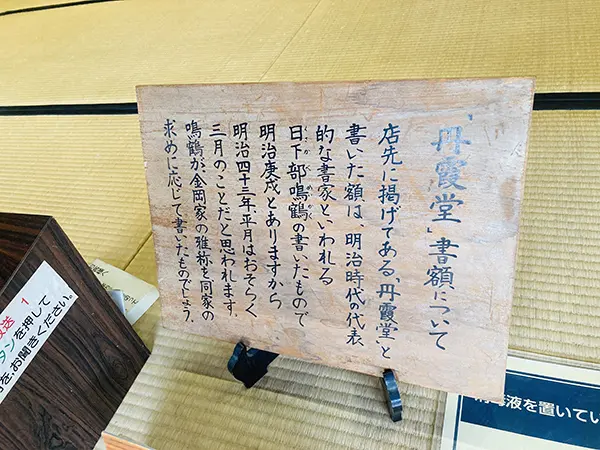 「丹霞堂」書額について
店先に掲げてある、「丹霞堂」と
書いた額は、明治時代の代表
的な書家といわれる
日下部鳴鶴の書いたもので
明治庚戌とありますから
明治四十三年、平月はおそらく
三月のことだと思われます。
鳴鶴が金岡家の雅称を同家の
求めに応じて書いたものでしょう。
放送 1
タンを押して
を、お聞きください。
液を置いてい